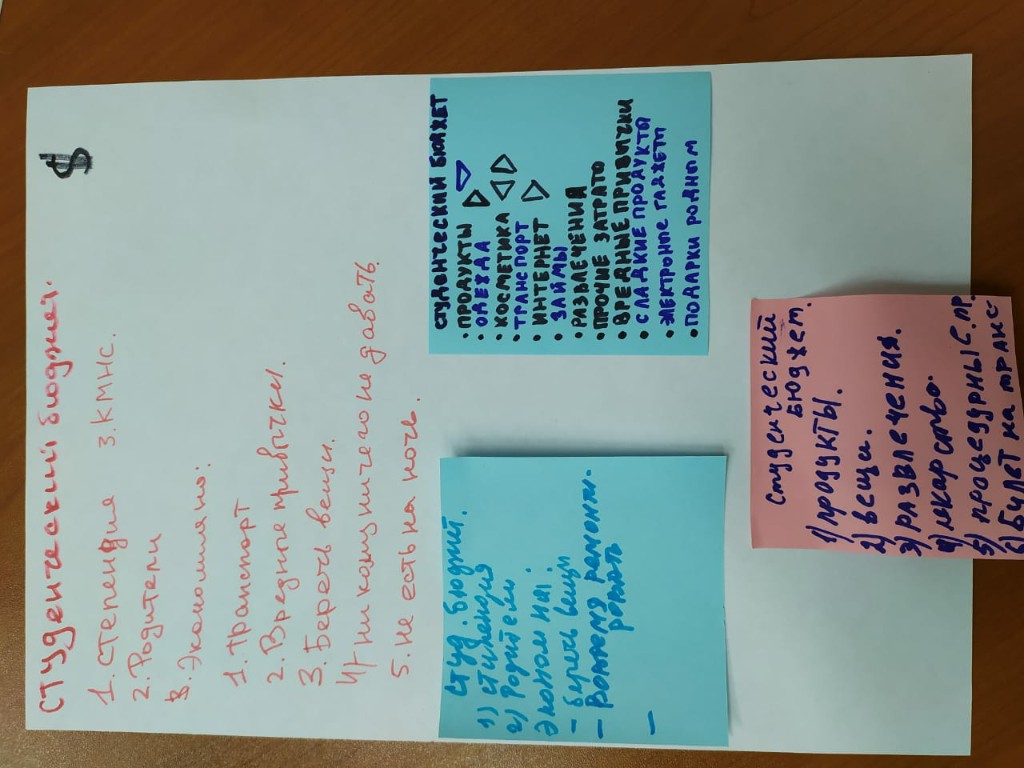 Студенческий бюджет.
$
1. Степендия 3. КМНС.
2. Родители
В. Экономияно:
1. транспорт
2. Вредные привычки.
3. Беречь вещи.
4) никому ничего не давать.
5. не есть на ночь.
студ. бюджет.
1) стипендия
2) Родители
Эконом на:
- беречь вещи
- Вовремя ремонти-
ровать
-
СТУДЕНЧЕСКИЙ БЮДЖЕТ
• ПРОДУКТЫ
• ОДЕЖДА
• КОСМЕТИКА
• ТРАНСПОРТ
• ИНТЕРНЕТ
• ЗАЙМЫ
• РАЗВЛЕЧЕНИЯ
• ПРОЧИЕ ЗАТРАТО
• ВРЕДНЫЕ ПРИВЫЧКИ
• СЛАДКИЕ ПРОДУКТЫ
ЭЛЕКТРОНЫЕ ГАДЖЕТЫ
• ПОДАРКИ РОДНЫМ
Студенческий
Бюджет.
1) продукты.
2) вещи.
3) развлечения.
4) лекарство.
5) процедурные с.пр.
6) билет на транс-